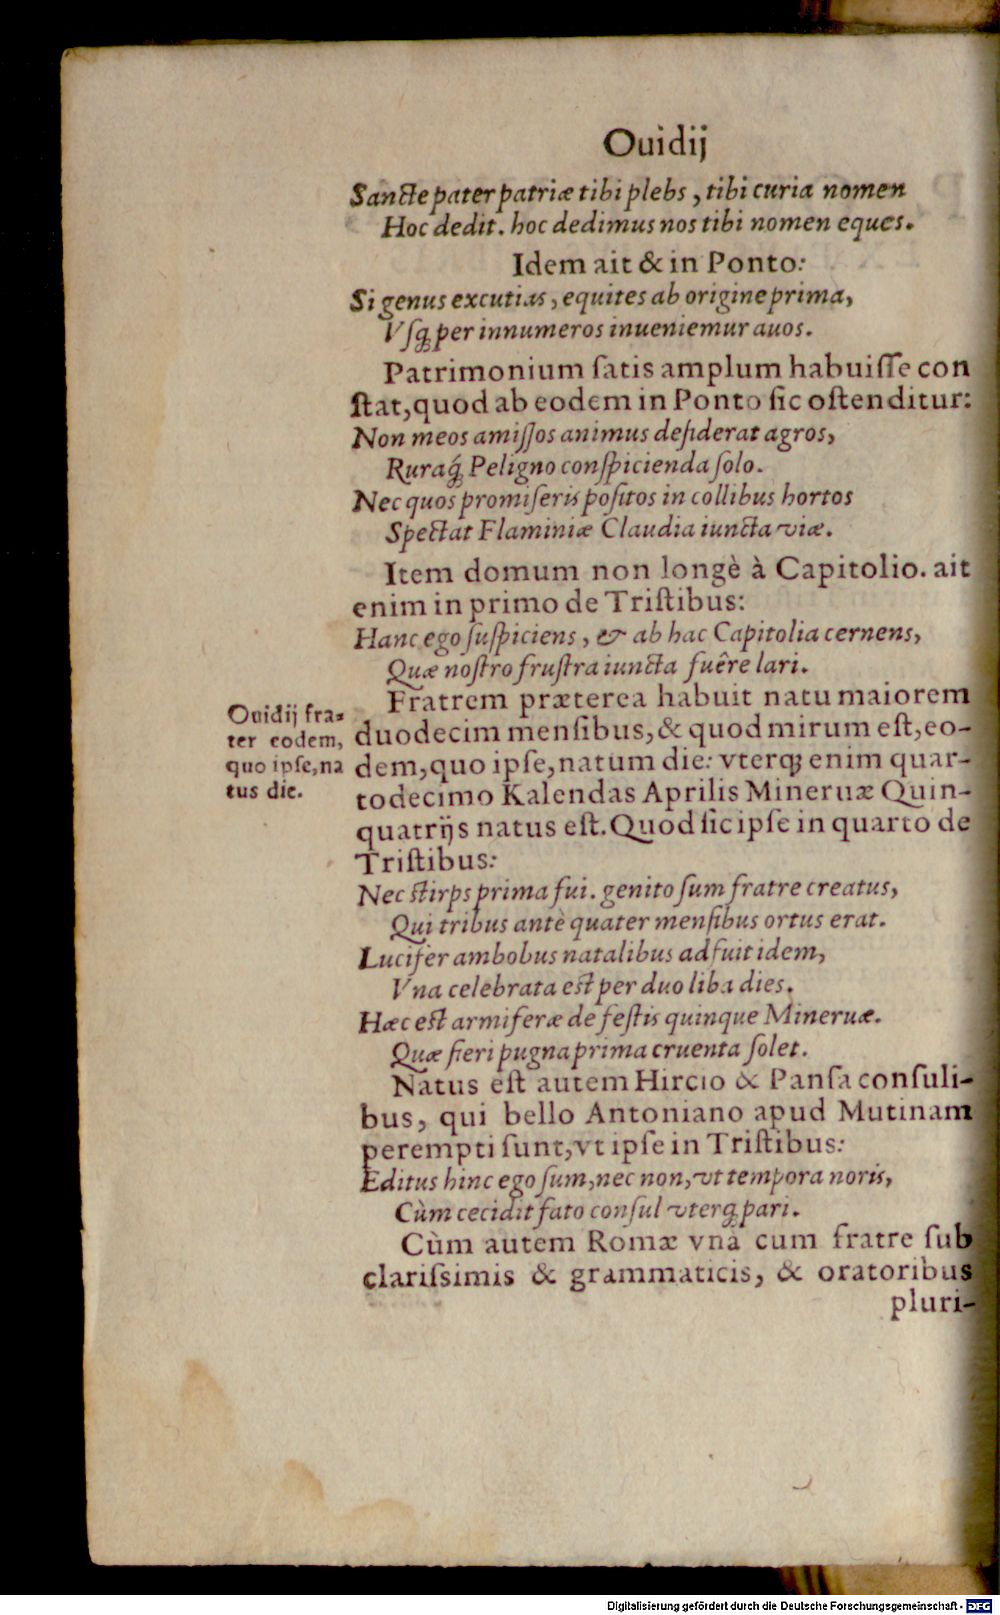 Ouidij
Sancte pater patriæ tibi plebs, tibi curia nomen
Hoc dedit. hoc dedimus nos tibi nomen eques.
Idem ait & in Ponto:
Si genus excutias, equites ab origine prima,
Vſq́; per innumeros inueniemur auos.
Patrimonium ſatis amplum habuiſſe con
ſtat, quod ab eodem in Ponto ſic oſtenditur:
Non meos amiſſos animus deſiderat agros,
Ruraq́; Peligno conſpicienda ſolo.
Nec quos promiſeris poſitos in collibus hortos
Spectat Flaminiæ Claudia iuncta viæ.
Item domum non longè à Capitolio. ait
enim in primo de Triſtibus:
Hanc ego ſuſpiciens, & ab hac Capitolia cernens,
Quæ noſtro fruſtra iuncta fuêre lari.
Fratrem præterea habuit natu maiorem
duodecim menſibus, & quod mirum eſt, eo-
dem, quo ipſe, natum die: vterq; enim quar-
todecimo Kalendas Aprilis Mineruæ Quin-
quatrijs natus eſt. Quod ſic ipſe in quarto de
Triſtibus:
Ouidij fra-
ter eodem,
quo ipſe, na
tus die.
Nec ſtirps prima fui. genito ſum fratre creatus,
Qui tribus antè quater menſibus ortus erat.
Lucifer ambobus natalibus adfuit idem,
Vna celebrata eſt per duo liba dies.
Hæc eſt armiferæ de feſtis quinque Mineruæ.
Quæ fieri pugna prima cruenta ſolet.
Natus eſt autem Hircio & Panſa conſuli-
bus, qui bello Antoniano apud Mutinam
perempti ſunt, vt ipſe in Triſtibus:
Editus hinc ego ſum, nec non, vt tempora noris,
Cùm cecidit fato conſul vterq́; pari.
Cùm autem Romæ vnà cum fratre ſub
clariſsimis & grammaticis, & oratoribus
pluri-
Digitalisierung gefördert durch die Deutsche Forschungsgemeinschaft - DFG